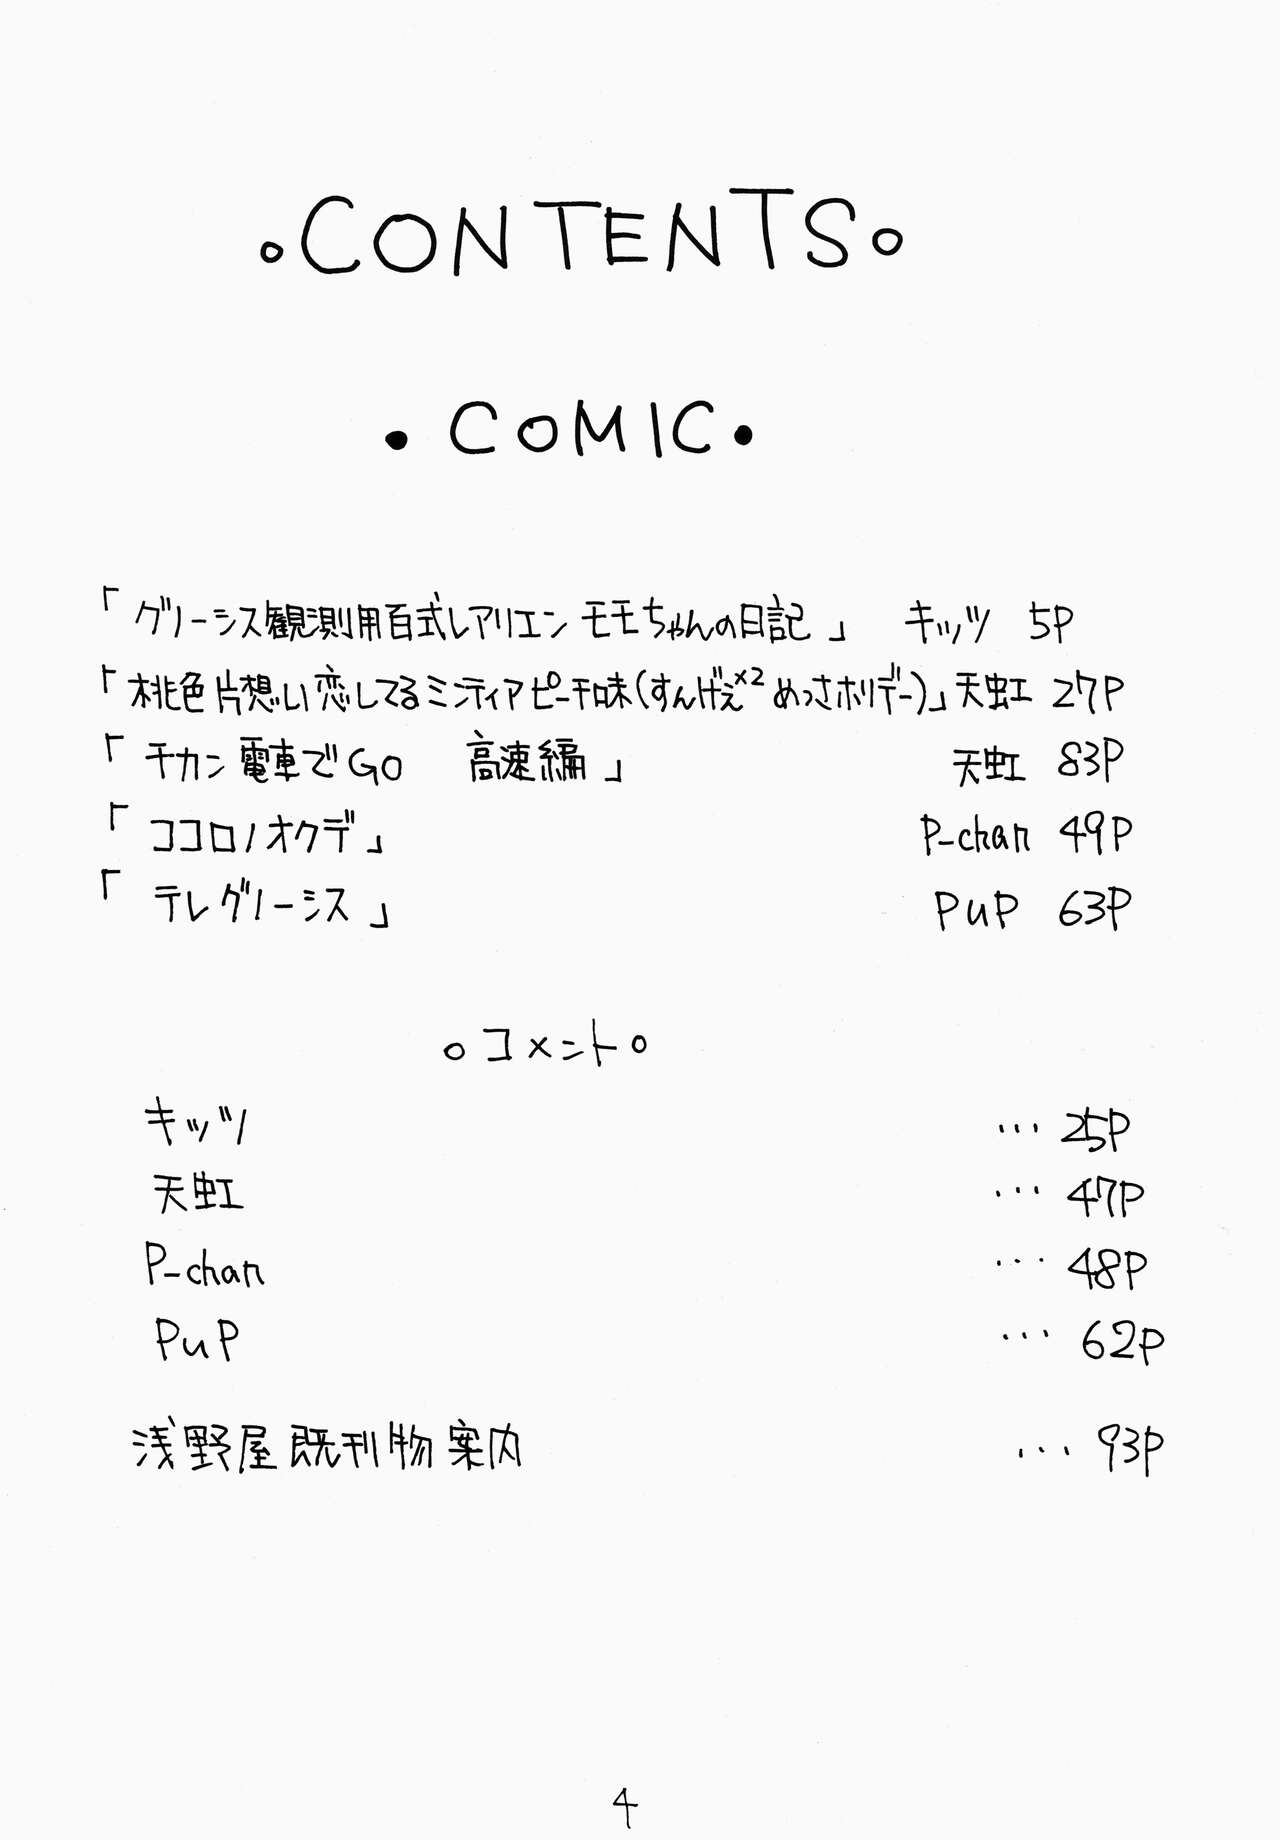 ○CONTENTS○
・COMIC・
「グリーシス観測用百式レアリエンモモちゃんの日記」 キッツ 5P
「桃色片想い恋してるミンティアピーチ味(すんげぇ×2めっさホリデー)」天虹 27P
「チカン電車でGO 高速編」 天虹 83P
「ココロノオクデ」 P-chan 49P
「テレグリーシス」 PuP 63P
○コメント○
キッツ … 25P
天虹 … 47P
P-chan … 48P
PuP … 62P
浅野屋既刊物案内 … 93P
4